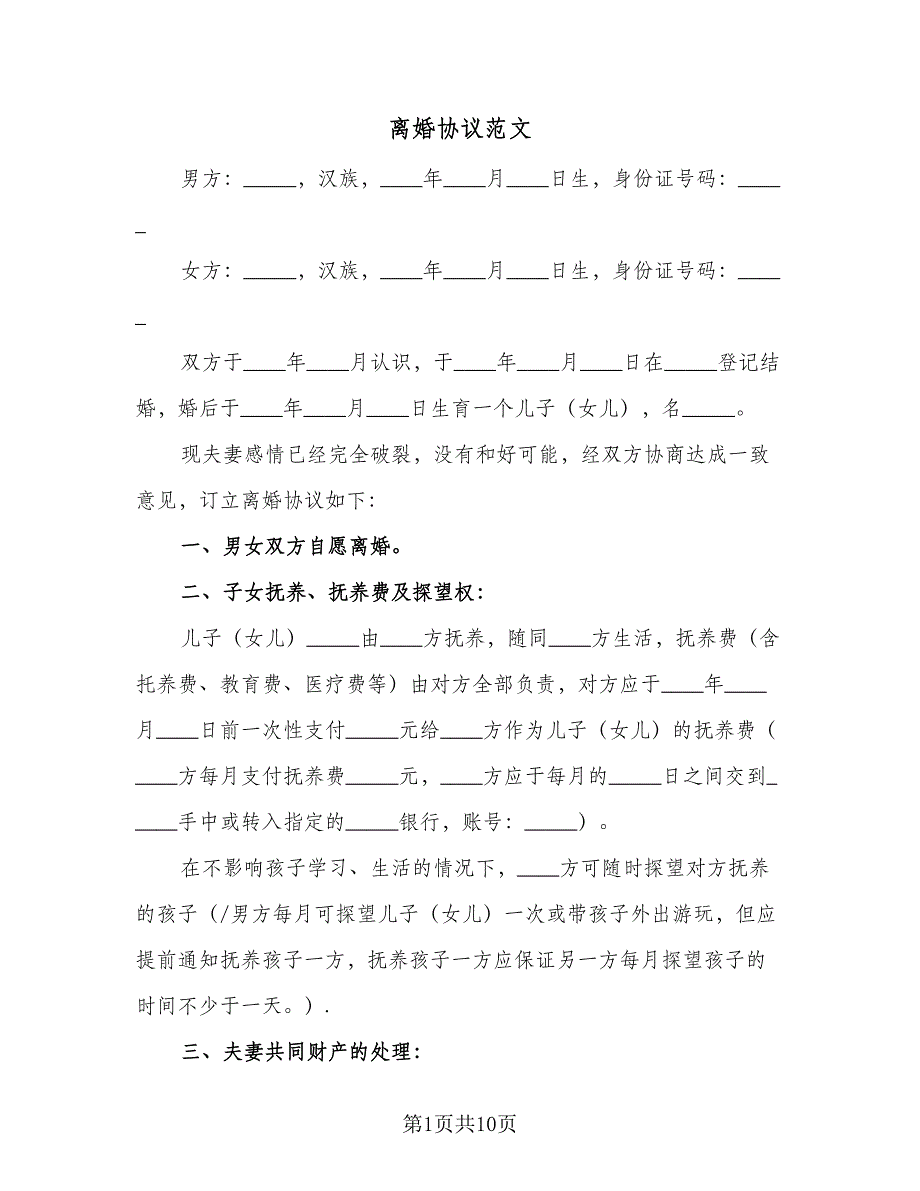 离婚协议范文
男方：_____，汉族，____年____月____日生，身份证号码：____
_
女方：_____，汉族，____年____月____日生，身份证号码：____
_
双方于____年____月认识，于____年____月____日在_____登记结
婚，婚后于____年____月____日生育一个儿子（女儿），名_____。
现夫妻感情已经完全破裂，没有和好可能，经双方协商达成一致
意见，订立离婚协议如下：
一、男女双方自愿离婚。
二、子女抚养、抚养费及探望权：
儿子（女儿）_____由____方抚养，随同____方生活，抚养费（含
托养费、教育费、医疗费等）由对方全部负责，对方应于____年____
月____日前一次性支付_____元给____方作为儿子（女儿）的抚养费（
____方每月支付抚养费_____元，____方应于每月的_____日之间交到_
____手中或转入指定的_____银行，账号：_____）。
在不影响孩子学习、生活的情况下，____方可随时探望对方抚养
的孩子（/男方每月可探望儿子（女儿）一次或带孩子外出游玩，但应
提前通知抚养孩子一方，抚养孩子一方应保证另一方每月探望孩子的
时间不少于一天。）.
三、夫妻共同财产的处理：
第1页共10页